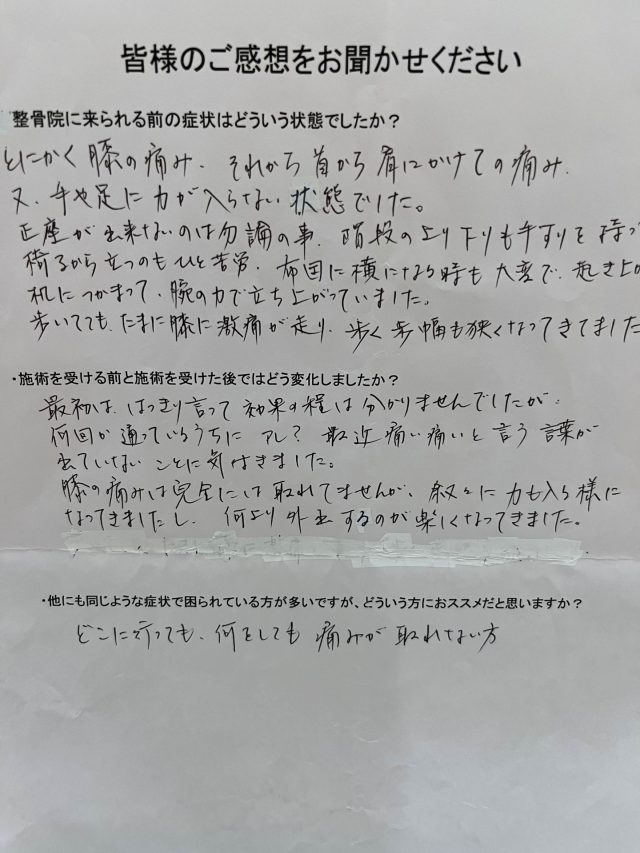 皆様のご感想をお聞かせください
整骨院に来られる前の症状はどういう状態でしたか？
とにかく膝の痛み、それから首から肩にかけての痛み、
又、手や足に力が入らない状態でした。
正座が出来ないのは勿論の事、階段の上り下りも手すりを持っ
椅子から立つのもひと苦労、布団に横になる時も大変で、起き上
机につかまって、腕の力で立ち上がっていました。
歩いてても、たまに膝に激痛が走り、歩く歩幅も狭くなってきてました
・施術を受ける前と施術を受けた後ではどう変化しましたか？
最初は、はっきり言って効果の程は分かりませんでしたが、
何回か通っているうちに アレ？ 最近痛い痛いと言う言葉が
出ていないことに気付きました。
膝の痛みは完全には取れてませんが、叙々に力も入る様に
なってきましたし、何より外出するのが楽しくなってきました。
・他にも同じような症状で困られている方が多いですが、どういう方におススメだと思いますか？
どこに行っても、何をしても痛みが取れない方